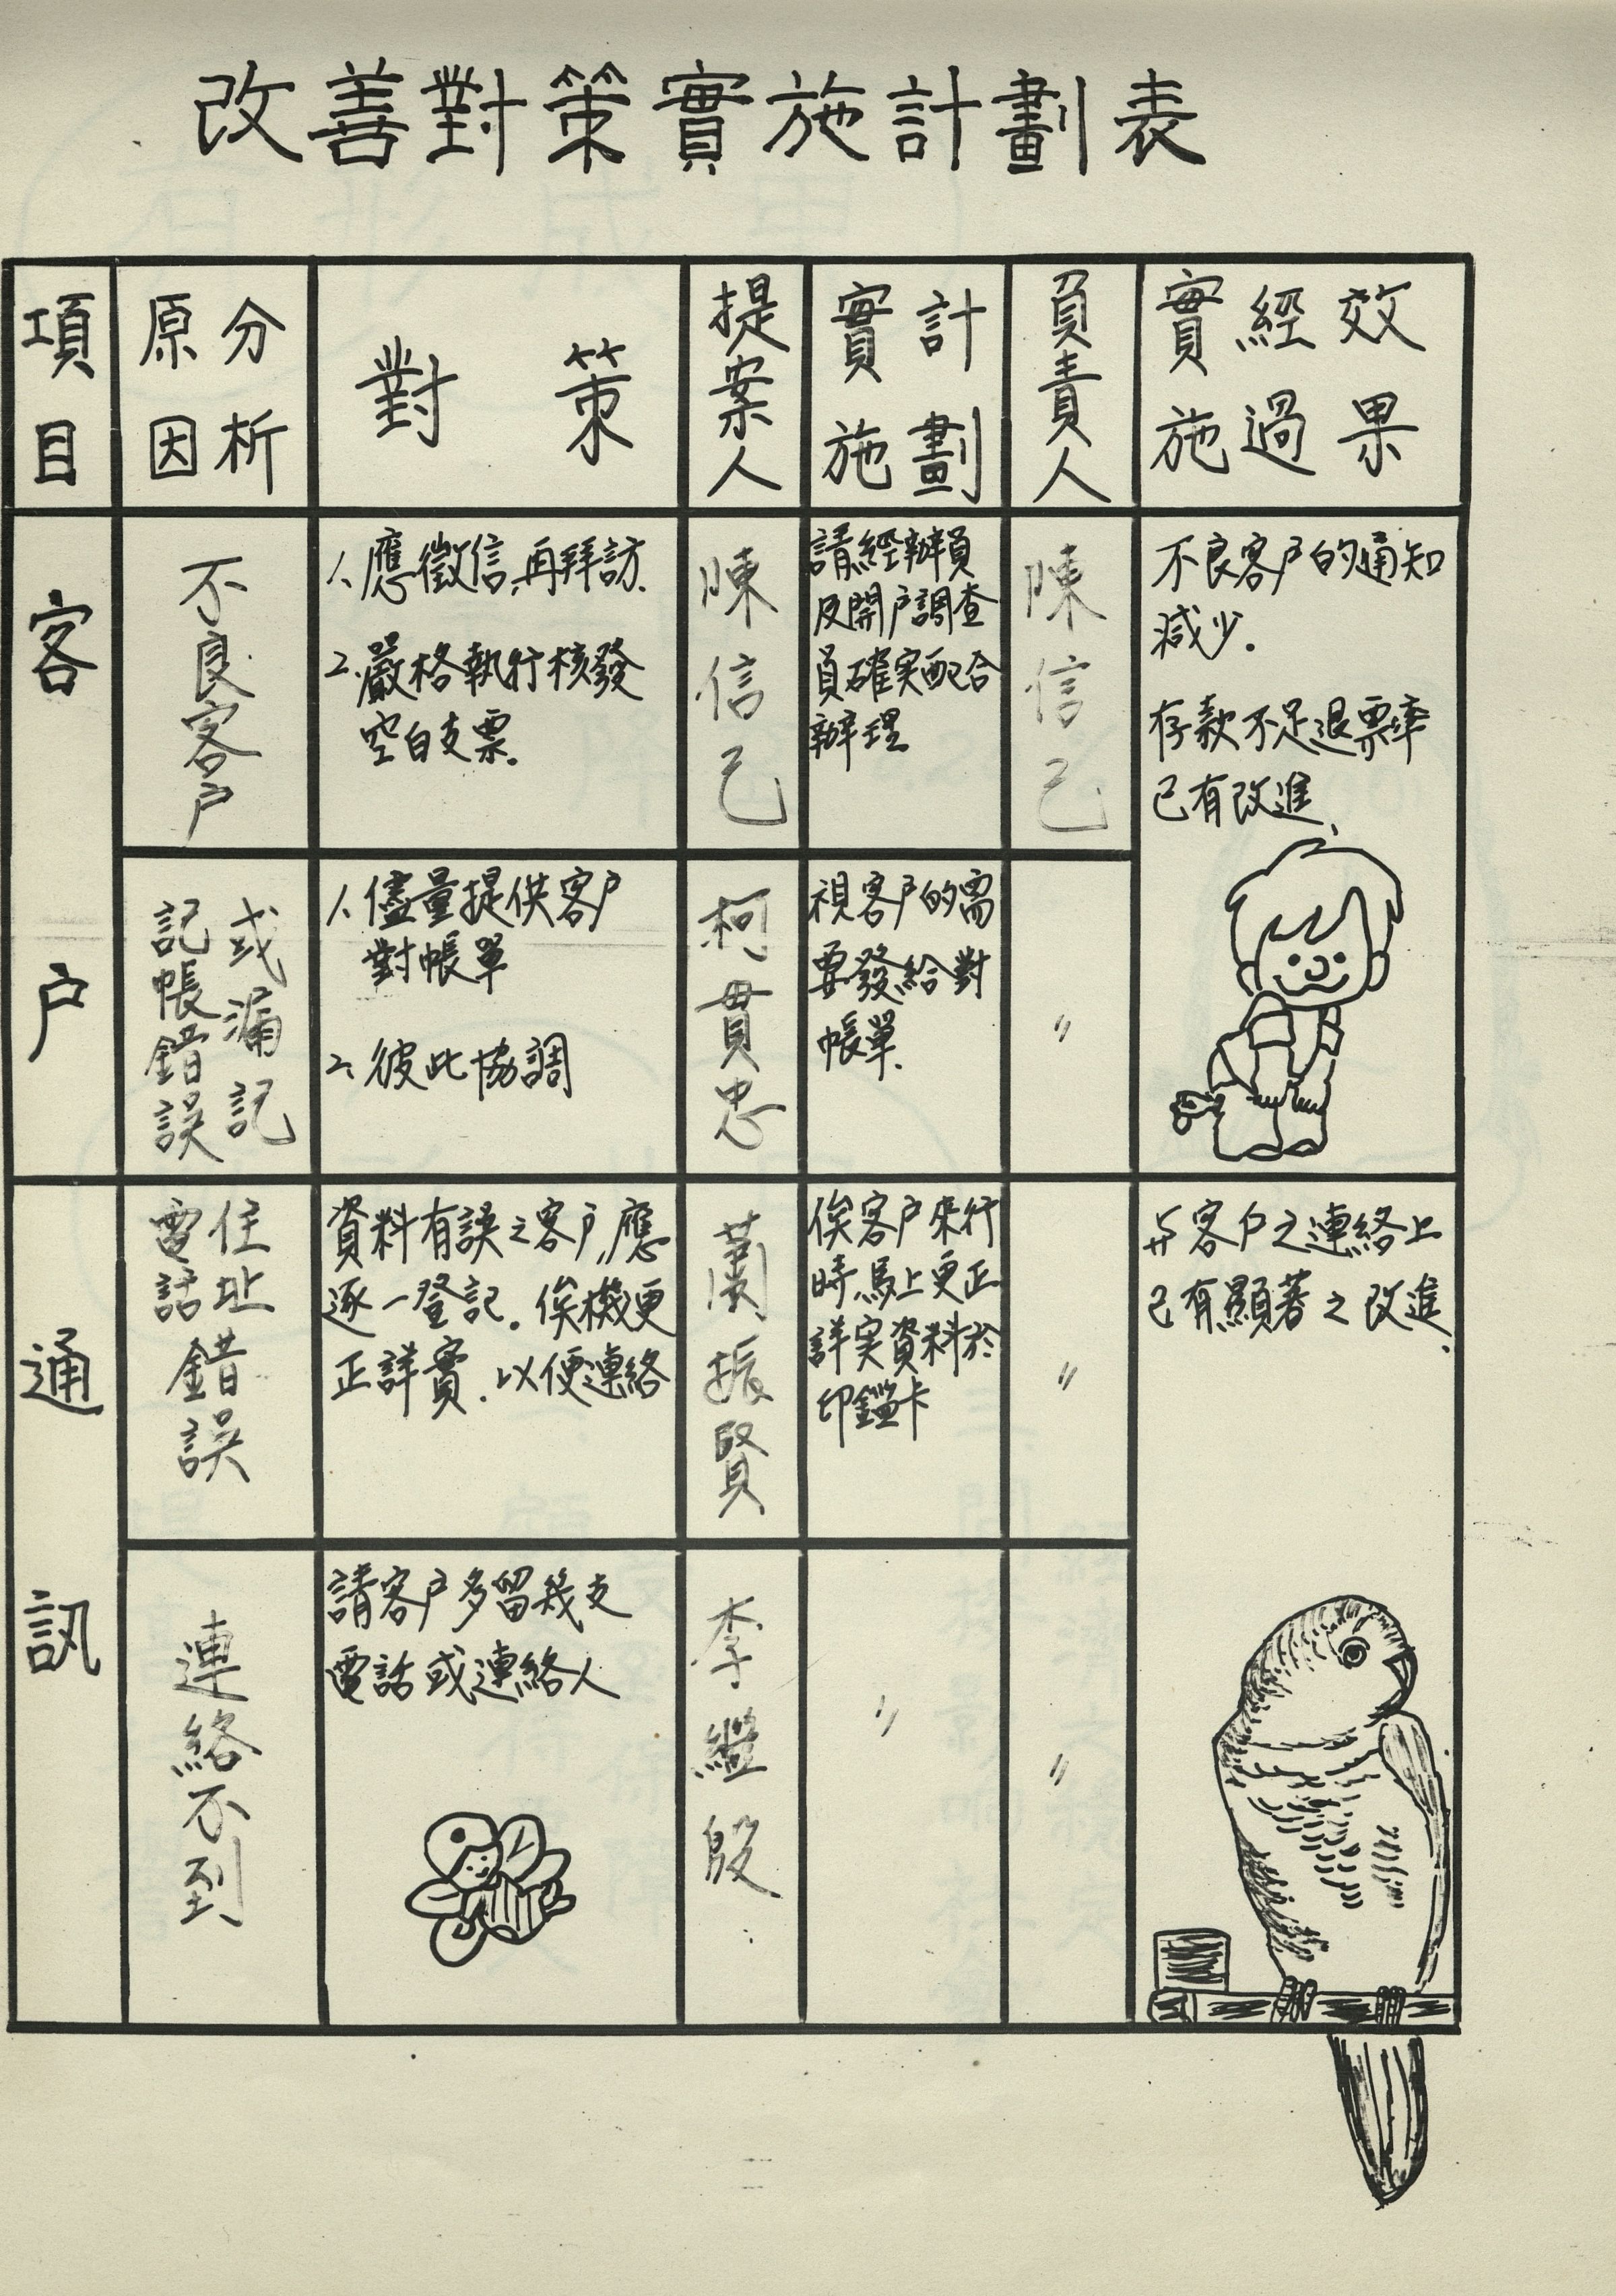 改善對策實施計劃表
項目
原因
分析
對策
提案人
實施
計劃
負責人
實施
經過
效果
客戶
不良客戶
1、應徵信,再拜訪.
2、嚴格執行核發
空白支票.
陳信己
請經辦員
及開戶調查
員確実配合
辦理
陳信己
不良客戶的通知
減少.
存款不足退票率
已有改進、
記帳錯誤
或漏記
1、儘量提供客戶
對帳單
2、彼此協調
柯貫忠
視客戶的需
要發給對
帳單.
〃
通訊
電話
住址
錯誤
資料有誤之客戶,應
逐一登記.俟機更
正詳實.以便連絡
振賢
俟客戶來行
時,馬上更正
詳実資料於
印鑑卡
〃
与客戶之連絡上
已有顯著之改進、
連絡不到
請客戶多留幾支
電話或連絡人
李繼殷
〃
〃